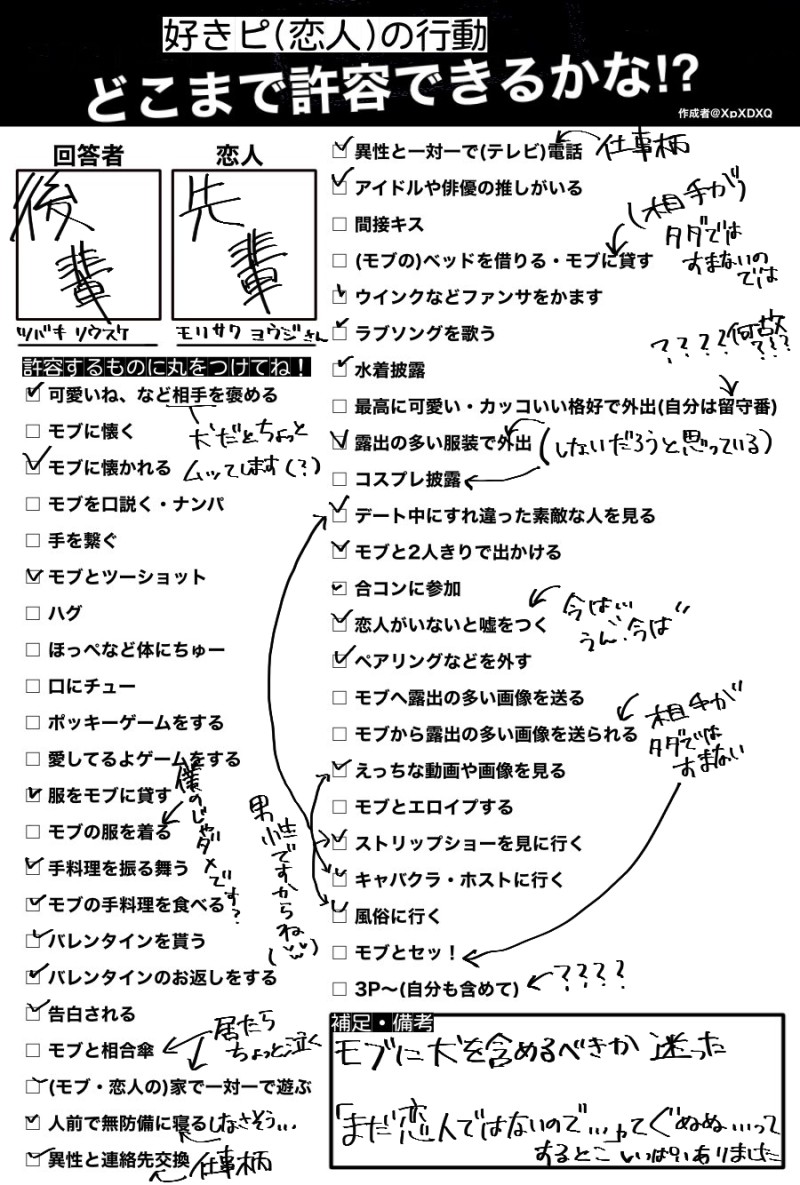 好きピ(恋人)の行動
どこまで許容できるかな!?
作成者@XpXDXQ
回答者
恋人
後輩
先輩
ツバキ ソウスケ
モリサワ ヨウジさん
許容するものに丸をつけてね！
可愛いね、など相手を褒める
犬だとちょっと
ムッてします(?)
モブに懐く
モブに懐かれる
モブを口説く・ナンパ
手を繋ぐ
モブとツーショット
ハグ
ほっぺなど体にちゅー
口にチュー
ポッキーゲームをする
愛してるよゲームをする
服をモブに貸す
モブの服を着る
僕のじゃダメです?
手料理を振る舞う
モブの手料理を食べる
バレンタインを貰う
バレンタインのお返しをする
告白される
モブと相合傘
居たら
ちょっと泣く
(モブ・恋人の)家で一対一で遊ぶ
人前で無防備に寝る
しなさそう…
異性と連絡先交換
仕事柄
異性と一対一で(テレビ)電話
仕事柄
アイドルや俳優の推しがいる
間接キス
(モブの)ベッドを借りる・モブに貸す
(相手が)
タダでは
すまないの
では
ウインクなどファンサをかます
ラブソングを歌う
水着披露
????何故
???
最高に可愛い・カッコいい格好で外出(自分は留守番)
露出の多い服装で外出
(しないだろうと思っている)
コスプレ披露
デート中にすれ違った素敵な人を見る
モブと2人きりで出かける
合コンに参加
恋人がいないと嘘をつく
今は…
うん、今は
ペアリングなどを外す
モブへ露出の多い画像を送る
モブから露出の多い画像を送られる
相手が
タダでは
すまない
えっちな動画や画像を見る
モブとエロイプする
ストリップショーを見に行く
キャバクラ・ホストに行く
風俗に行く
男性ですからね
モブとセッ！
3P〜(自分も含めて)
????
補足・備考
モブに犬を含めるべきか 迷った
「まだ恋人ではないので…」ってぐぬぬ…って
するとこ いっぱいありました